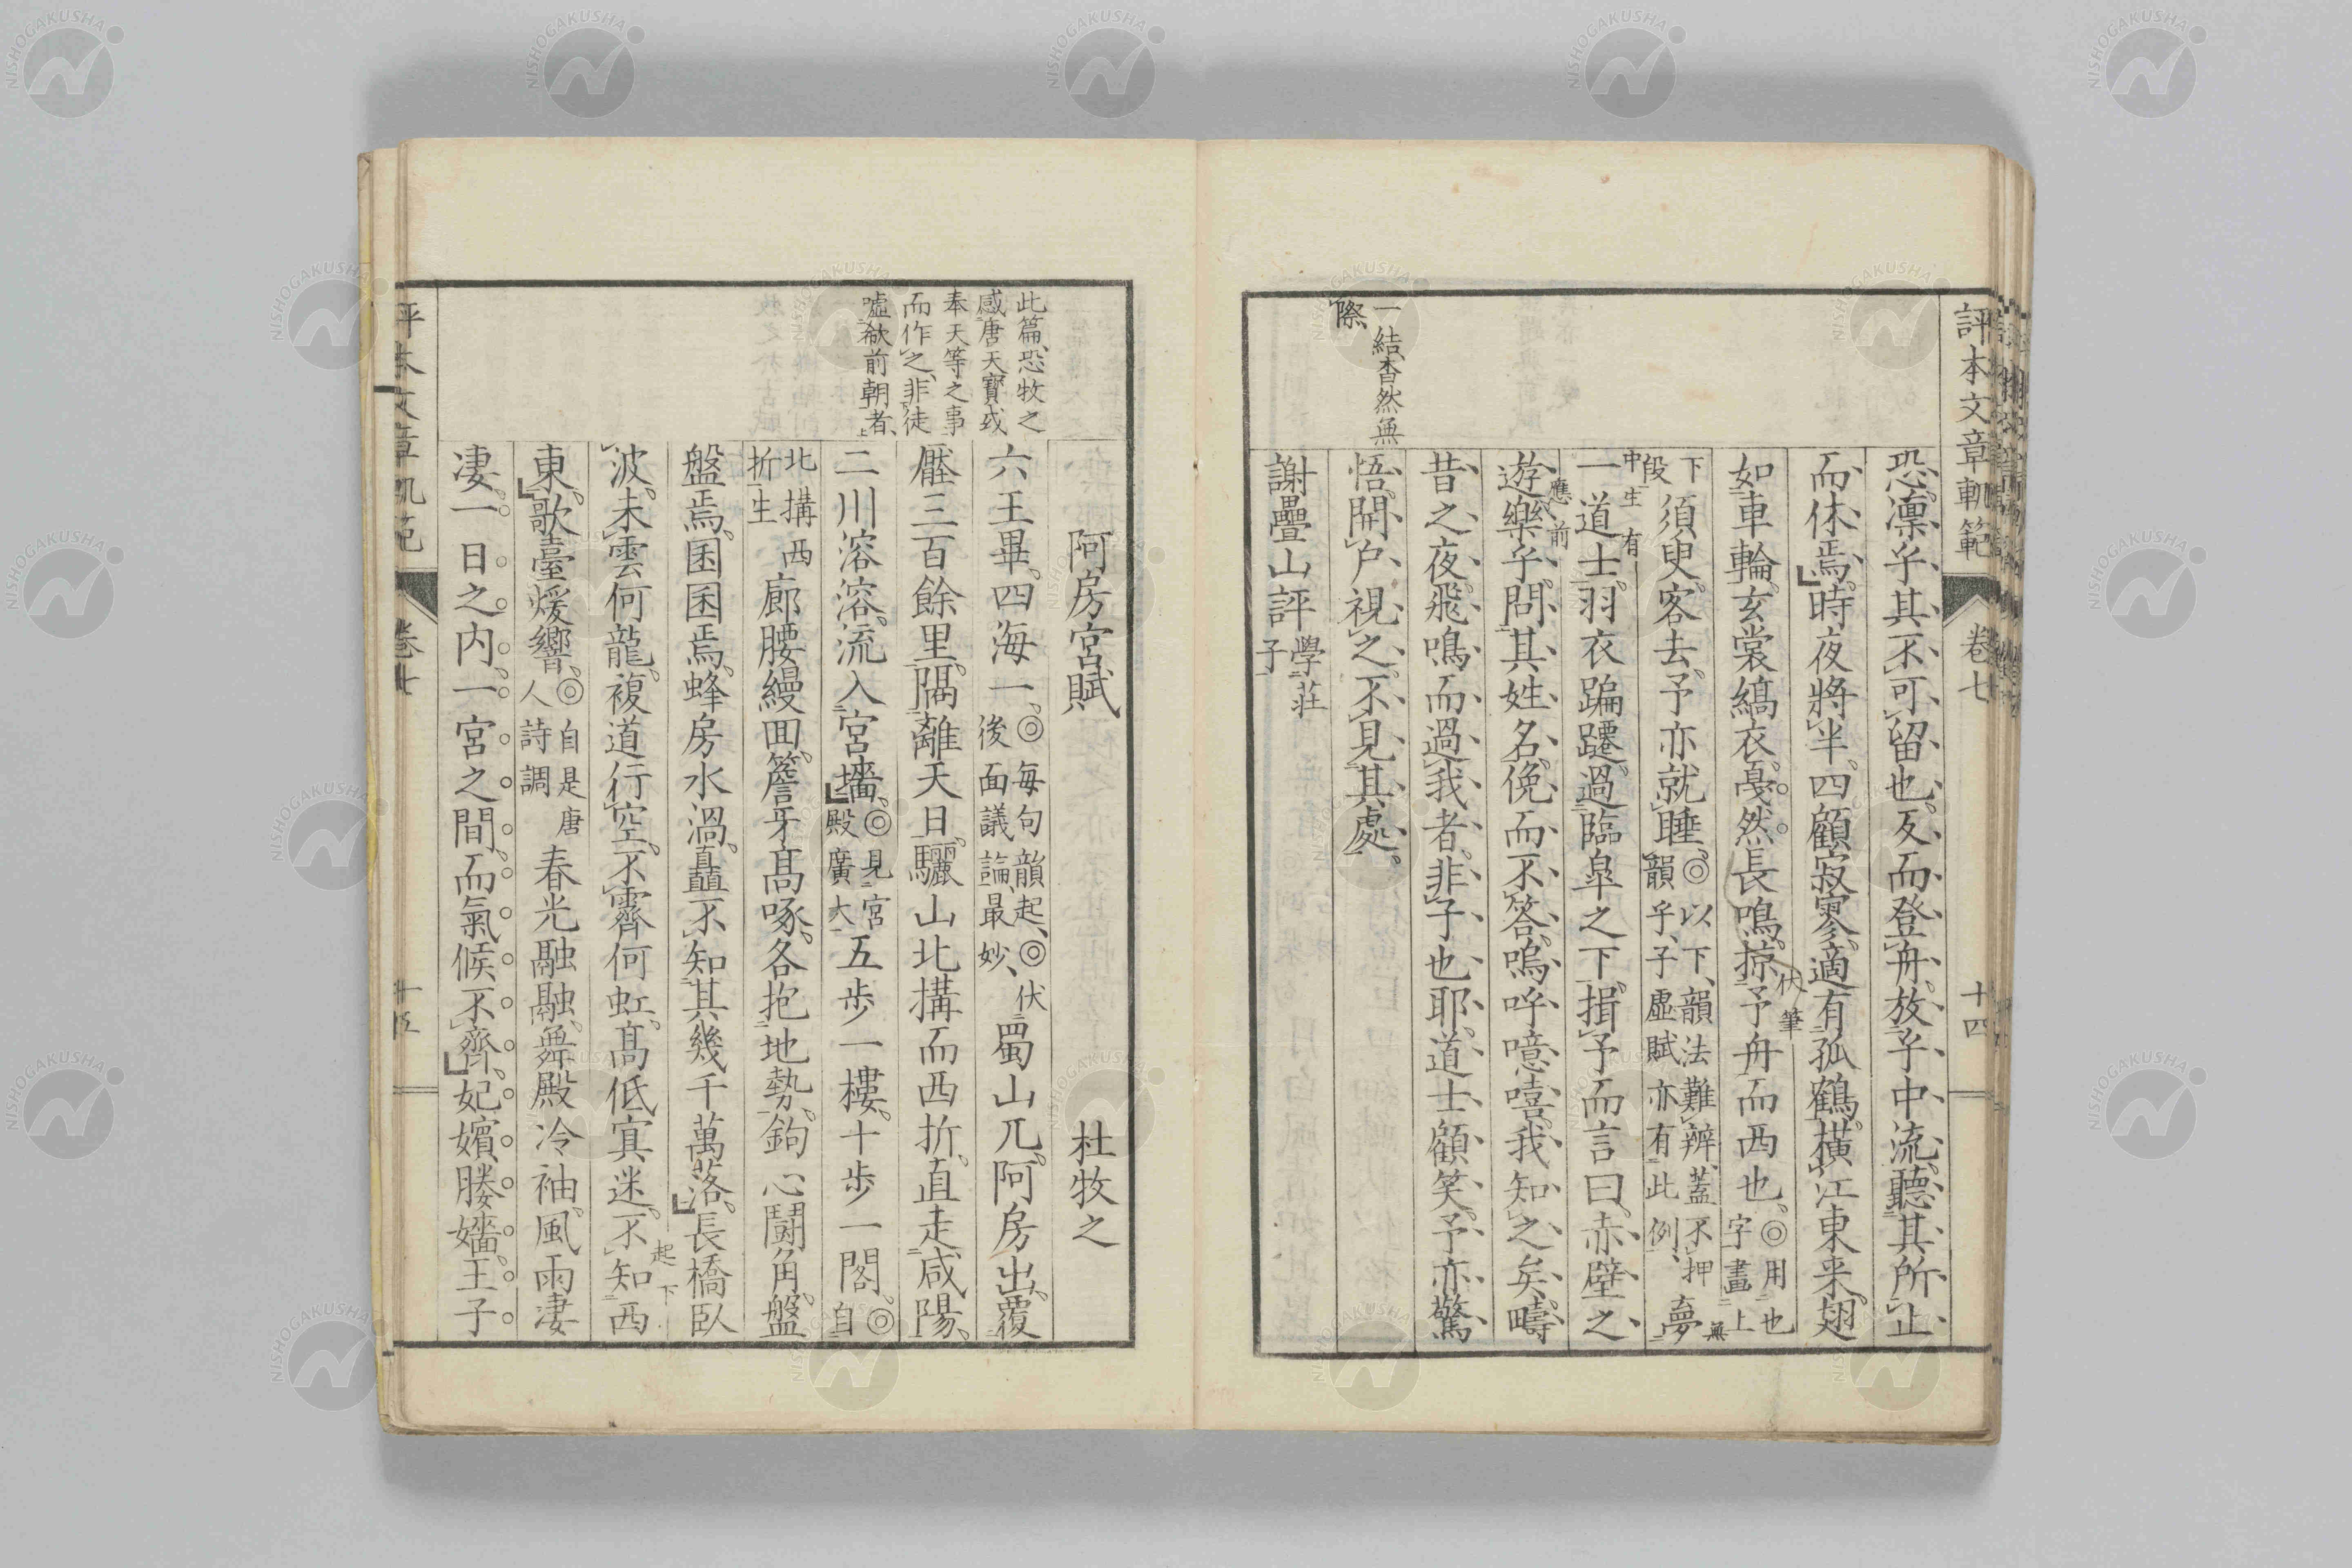 評本文章軌範 卷七 十四
恐凛乎其不可留也反而登舟放乎中流聽其所止
而休焉時夜將半四顧寂寥適有孤鶴橫江東来翅
如車輪玄裳縞衣戛然長鳴掠予舟而西也◎用也字畫上無
伏筆
下段須臾客去予亦就睡◎以下韻法難辨蓋不押韻乎子虛賦亦有此例夢
中生有
一道士羽衣蹁躚過臨皐之下揖予而言曰赤壁之
應前
遊樂乎問其姓名俛而不答嗚呼噫嘻我知之矣疇
昔之夜飛鳴而過我者非子也耶道士顧笑予亦驚
一結杳然無
際
悟開戶視之不見其處
謝疊山評學莊子
阿房宮賦 杜牧之
此篇恐牧之
感唐天寶或
奉天等之事
而作之非徒
噓欷前朝者
六王畢四海一◎每句韻起◎伏後面議論最妙蜀山兀阿房出覆
壓三百餘里隔離天日驪山北搆而西折直走咸陽
二川溶溶流入宮墻◎見宮殿廣大五步一樓十步一閣◎自
北搆西折生廊腰縵囬簷牙髙啄各抱地勢鉤心鬪角盤
盤焉囷囷焉蜂房水渦矗不知其幾千萬落長橋臥
波未雲何龍複道行空不霽何虹髙低㝠迷不知西
起下
東歌臺煖響◎自是唐人詩調春光融融舞殿冷袖風雨凄
凄一日之内一宮之間而氣候不齊妃嬪媵嬙王子
評本文章軌範 卷七 十五
NISHOGAKUSHA